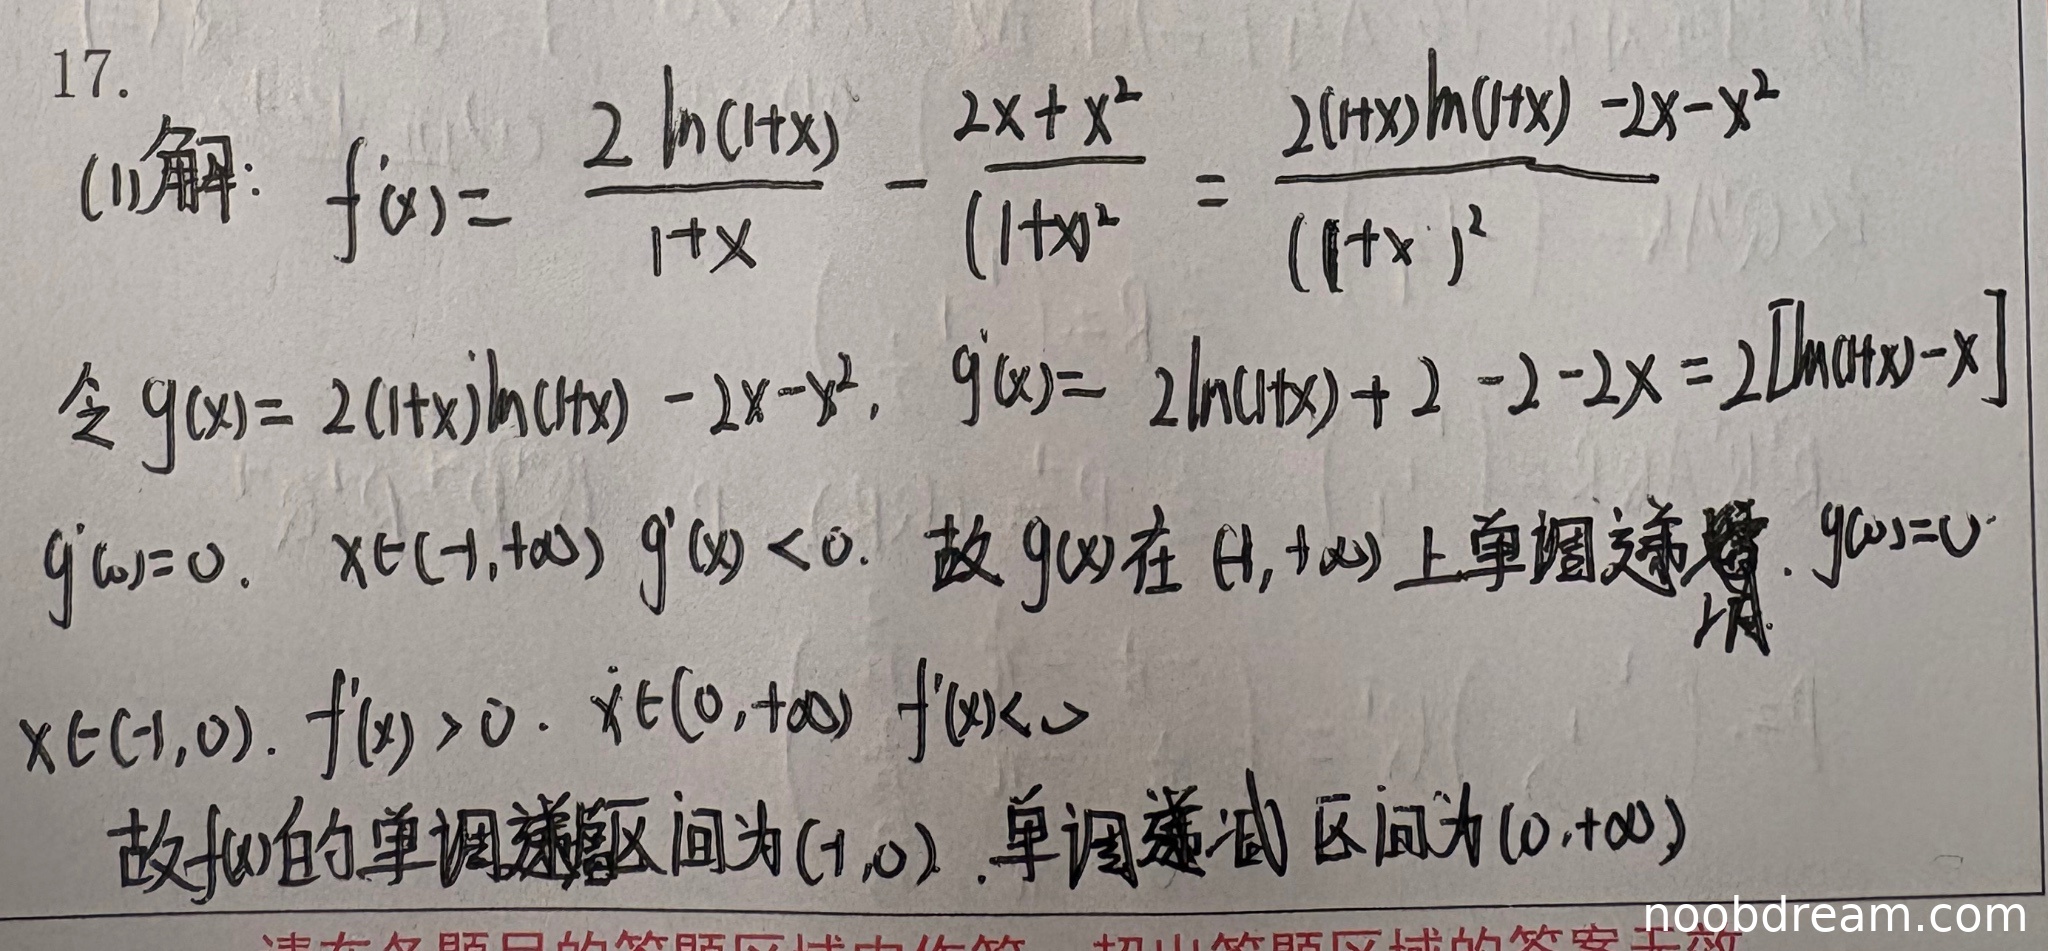 17.
(1)解: f'(x)= \frac{2\ln(1+x)}{1+x} - \frac{2x+x^2}{(1+x)^2} = \frac{2(1+x)\ln(1+x)-2x-x^2}{(1+x)^2}
令 g(x)= 2(1+x)ln(1+x) -2x-x², g'(x)= 2ln(1+x)+2-2-2x=2[ln(1+x)-x]
g'(0)=0. x∈(-1,+∞) g'(x)<0. 故 g(x)在 (-1,+∞)上单调递减. g(0)=0
x∈(-1,0). f'(x)>0. x∈(0,+∞) f'(x)<0
故f(x)的单调递增区间为(-1,0). 单调递减区间为(0,+∞)
noobdream.com